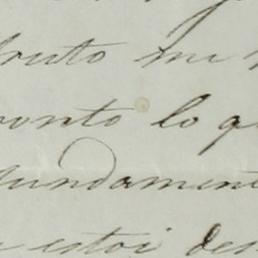 bruto mi
pronto lo q
fundament
estoi des